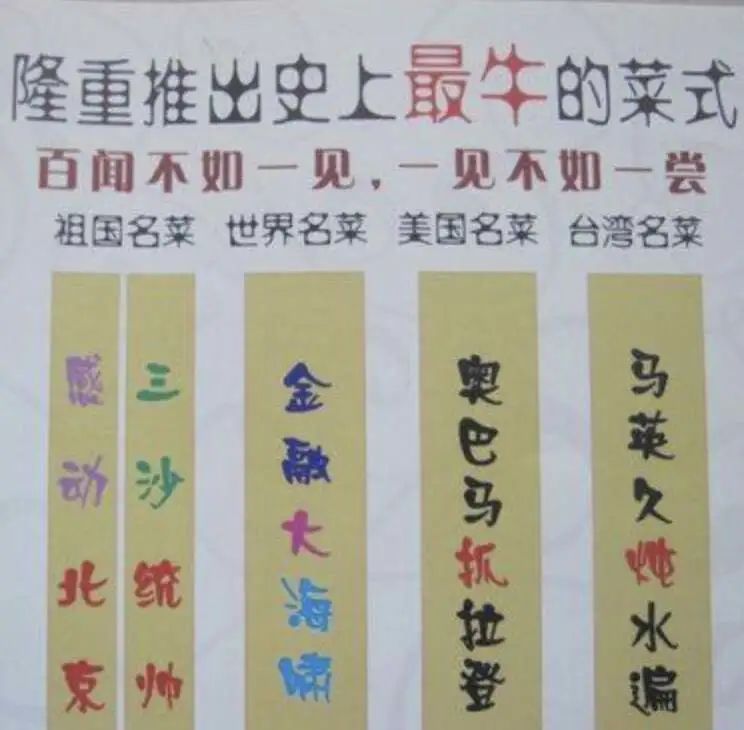 隆重推出史上最牛的菜式
百闻不如一见,一见不如一尝
祖国名菜 世界名菜 美国名菜 台湾名菜
感动北京
三沙统帅
金融大海啸
奥巴马抓拉登
马英久炖水遍